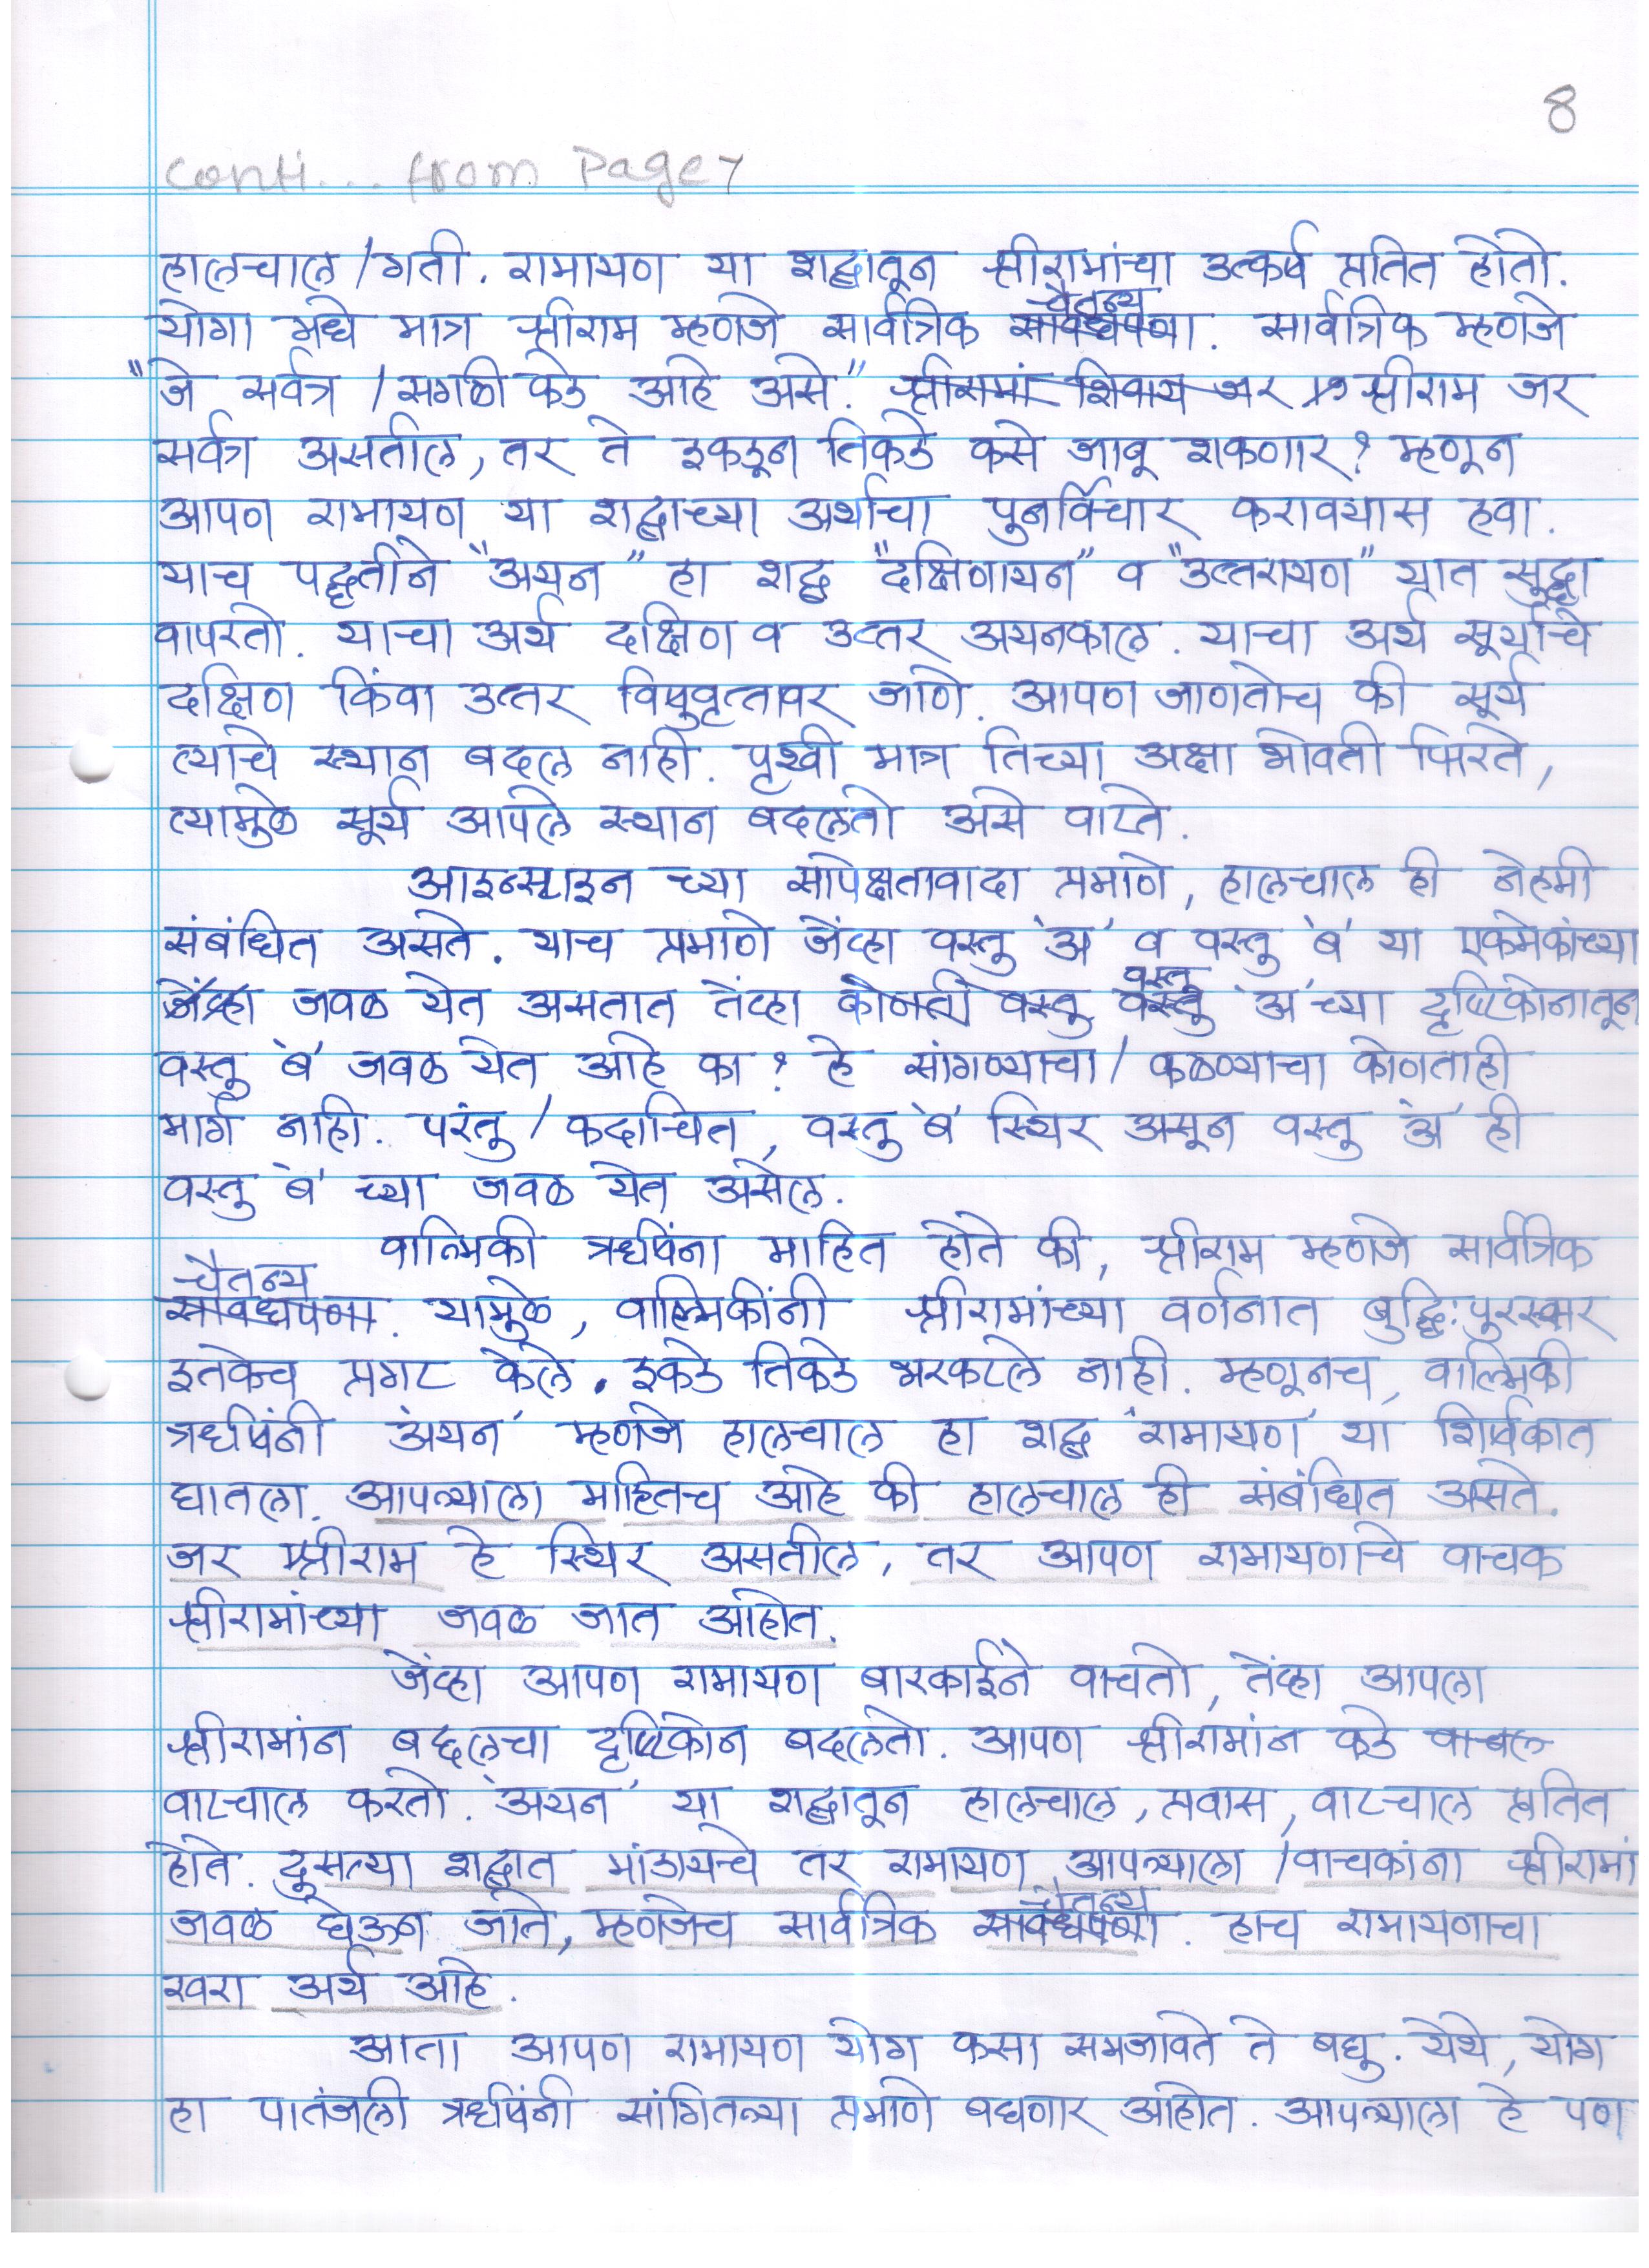 8
conti... from Page 7
हालचाल/गती. रामायण या शद्बातून श्रीरामांचा उत्कर्ष प्रतित होतो.
योगा मधे मात्र श्रीराम म्हणजे सार्वत्रिक चैतन्य. सार्वत्रिक म्हणजे
"जे सर्वत्र /सगळी कडे आहे असे." श्रीराम जर
सर्वत्र असतील, तर ते इकडून तिकडे कसे जावू शकणार? म्हणून
आपण रामायण या शद्बाच्या अर्थाचा पुनर्विचार करावयास हवा.
याच पद्धतीने "अयन" हा शद्ब "दक्षिणायन" व "उत्तरायण" यात सुद्धा
वापरतो. याचा अर्थ दक्षिण व उत्तर अयनकाल. याचा अर्थ सूर्याचे
दक्षिण किंवा उत्तर विषुवृत्तावर जाणे. आपण जाणतोच की सूर्य
त्याचे स्थान बदलत नाही. पृथ्वी मात्र तिच्या अक्षा भोवती फिरते,
त्यामुळे सूर्य आपले स्थान बदलतो असे वाटते.
आइन्स्टाइन च्या सापेक्षतावादा प्रमाणे, हालचाल ही नेहमी
संबंधित असते. याच प्रमाणे जेंव्हा वस्तु 'अ' व वस्तु 'ब' या एकमेकांच्या
जवळ येत असतात तेंव्हा कोणती वस्तु वस्तु 'अ'च्या दृष्टिकोनातून
वस्तु 'ब' जवळ येत आहे का? हे सांगण्याचा/ कळण्याचा कोणताही
मार्ग नाही. परंतु / कदाचित, वस्तु 'ब' स्थिर असून वस्तु 'अ' ही
वस्तु 'ब' च्या जवळ येत असेल.
वाल्मिकी ऋषींना माहित होते की, श्रीराम म्हणजे सार्वत्रिक
चैतन्य. यामुळे, वाल्मिकींनी श्रीरामांच्या वर्णनात बुद्धि:पुरस्सर
इतकेच प्रगट केले. इकडे तिकडे भरकटले नाही. म्हणूनच, वाल्मिकी
ऋषींनी 'अयन' म्हणजे हालचाल हा शद्ब 'रामायण' या शिर्षकात
घातला. आपल्याला माहितच आहे की हालचाल ही संबंधित असते.
जर श्रीराम हे स्थिर असतील, तर आपण रामायणाचे वाचक
श्रीरामांच्या जवळ जात आहोत.
जेंव्हा आपण रामायण बारकाईने वाचतो, तेंव्हा आपला
श्रीरामांन बद्दलचा दृष्टिकोन बदलतो. आपण श्रीरामांन कडे
वाटचाल करतो. 'अयन' या शद्बातून हालचाल, प्रवास, वाटचाल प्रतित
होते. दुसऱ्या शद्बात मांडायचे तर रामायण आपल्याला /वाचकांना श्रीरामां
जवळ घेऊन जाते, म्हणजेच सार्वत्रिक चैतन्य. हाच रामायणाचा
खरा अर्थ आहे.
आता आपण रामायण योग कसा समजावते ते बघु. येथे, योग
हा पातंजली ऋषींनी सांगितल्या प्रमाणे बघणार आहोत. आपल्याला हे पण